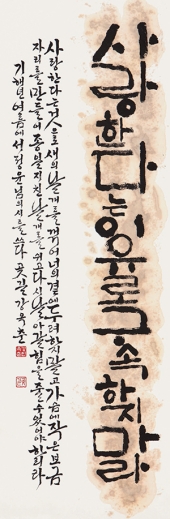 사랑한다는 이유로 구속하지 말라
사랑한다는 것으로 새의 날개를 꺾어 너의 곁에 두려 하지 말고 가슴에 작은 보금
자리를 만들어 종일 지친 날개를 쉬고 다시 날아갈 힘을 줄 수 있어야 하리라
기해년 여름에 서정윤님의 시를 쓰다 꽃길 강옥춘